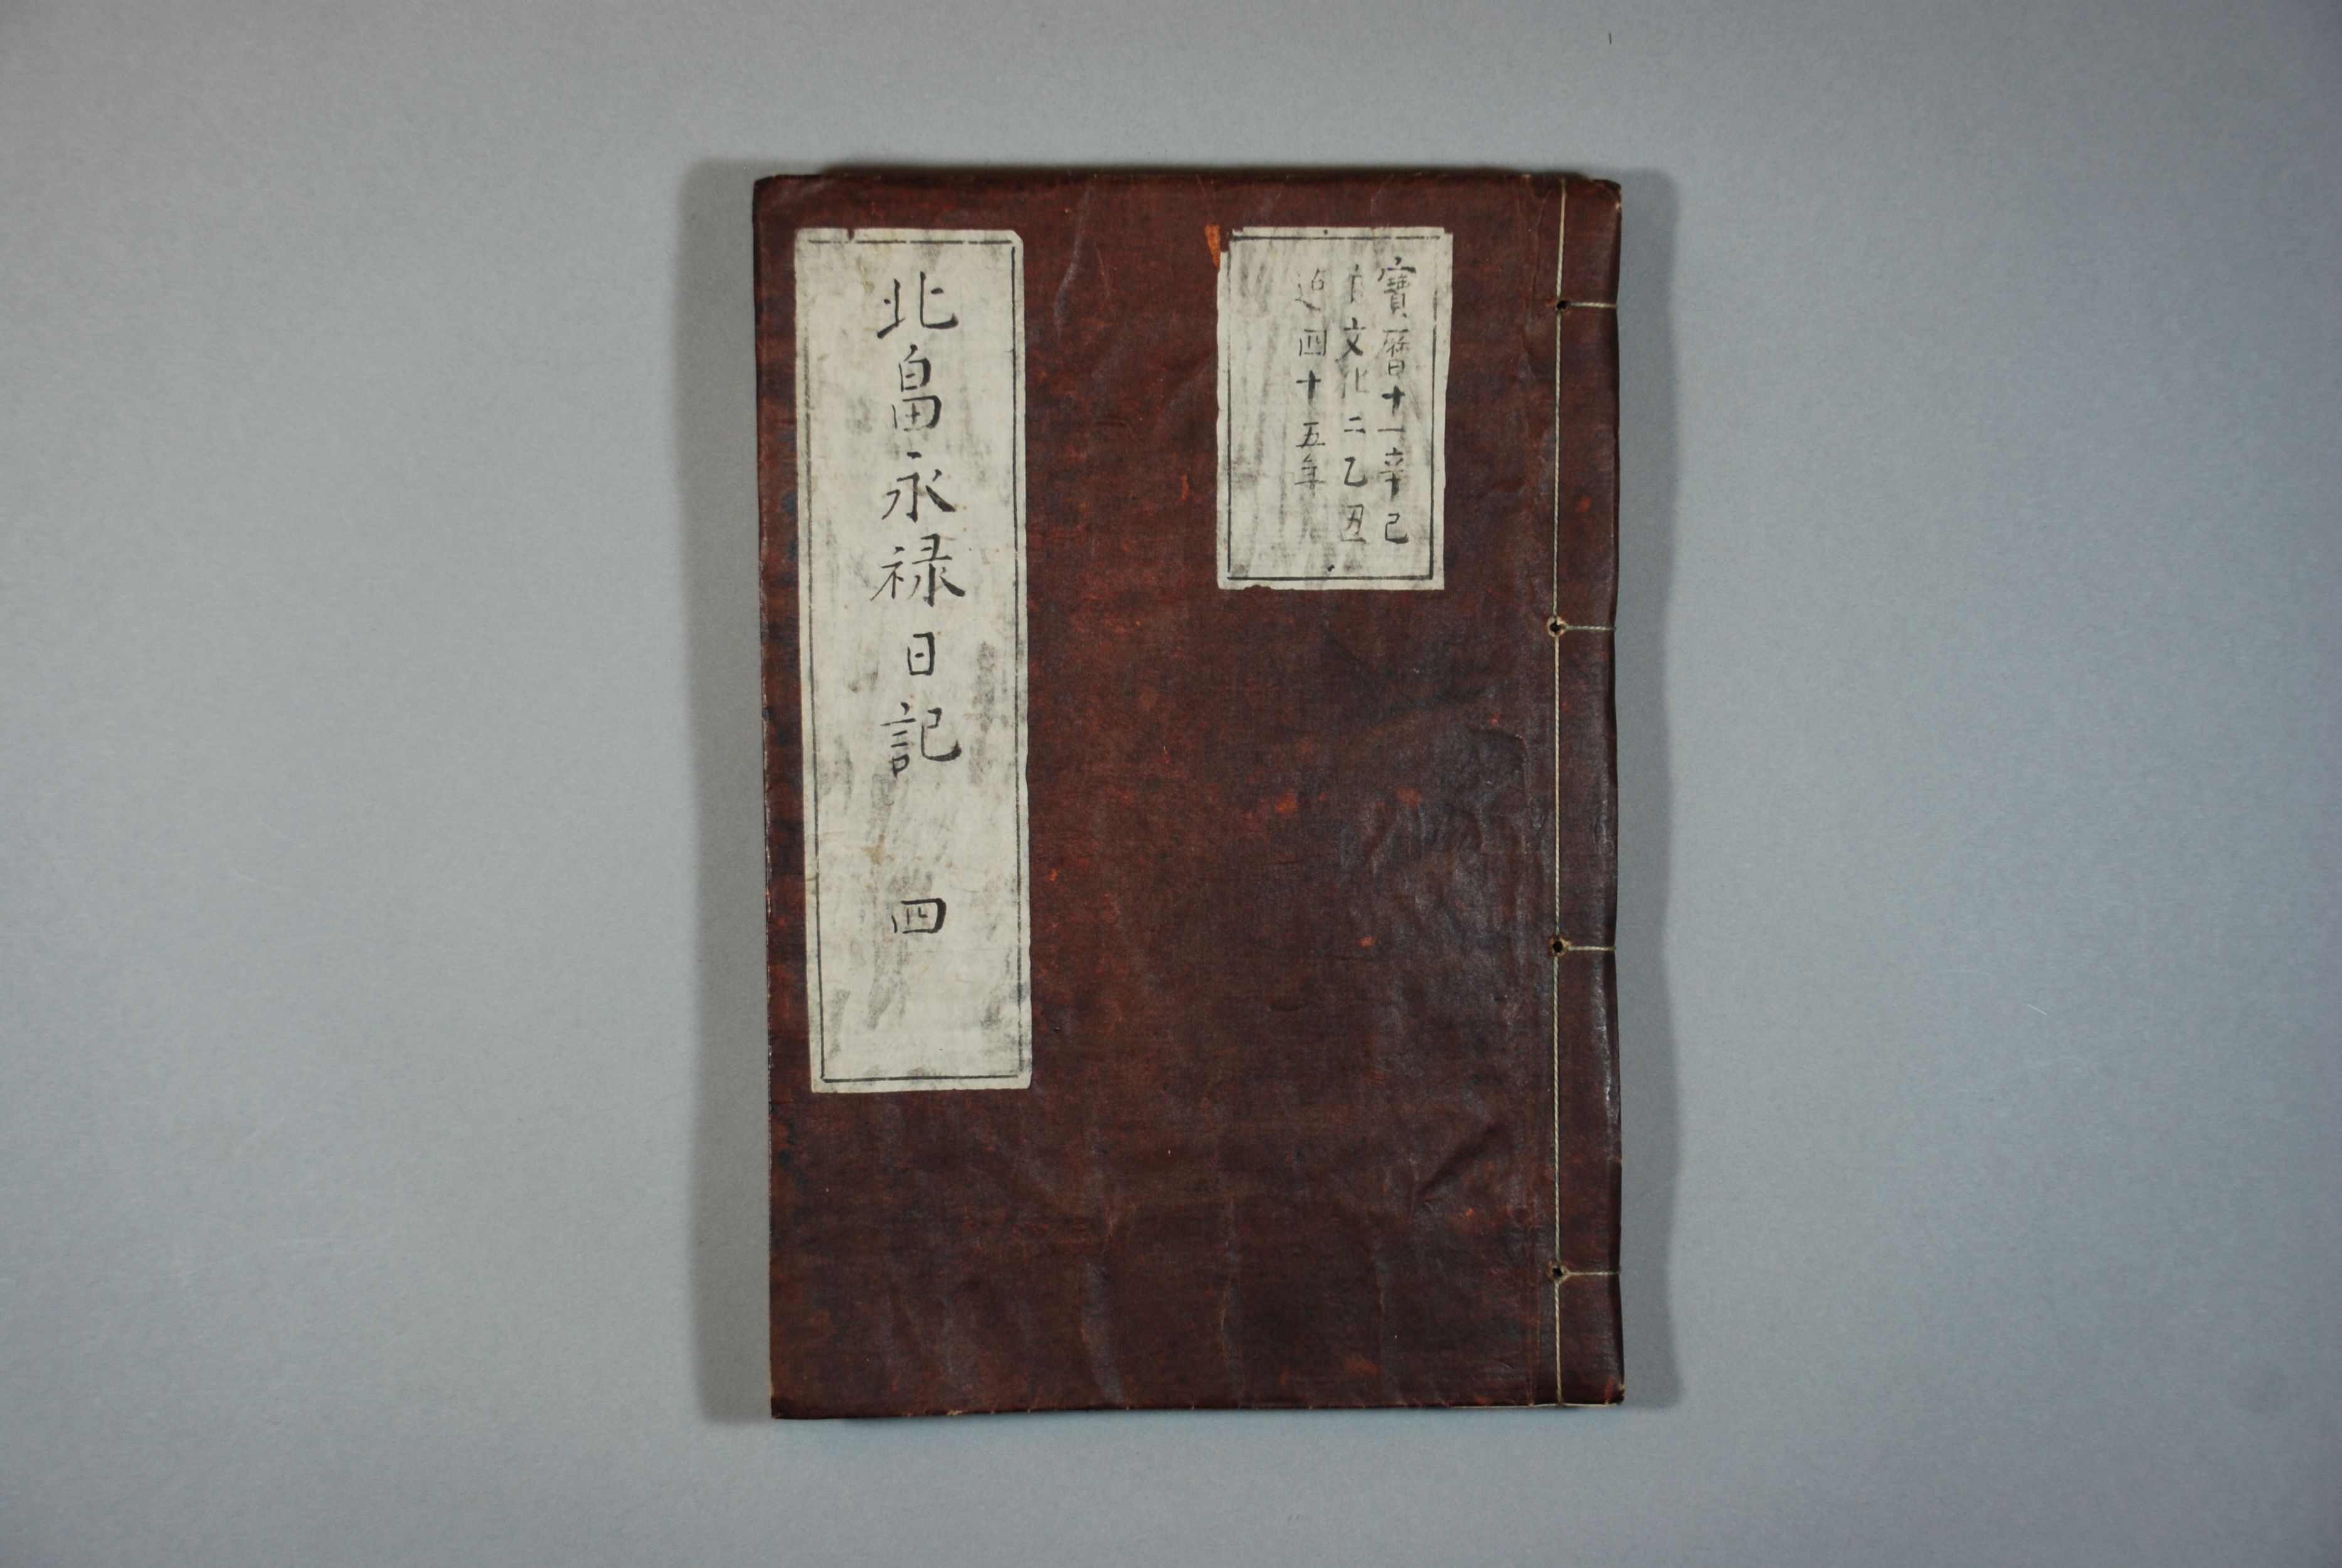 寶暦十一辛巳
文化二乙丑
迠四十五年
北畠永禄日記 四